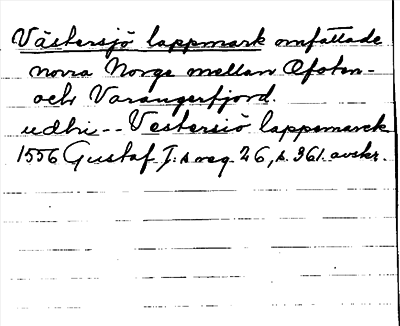 Västersjö lappmark omfattade
norra Norge mellan Ofoten-
och Varangerfjord.
udhi -- Vestersiö lappmarck
1556 Gustaf I:s reg. 26, s. 361. avskr.